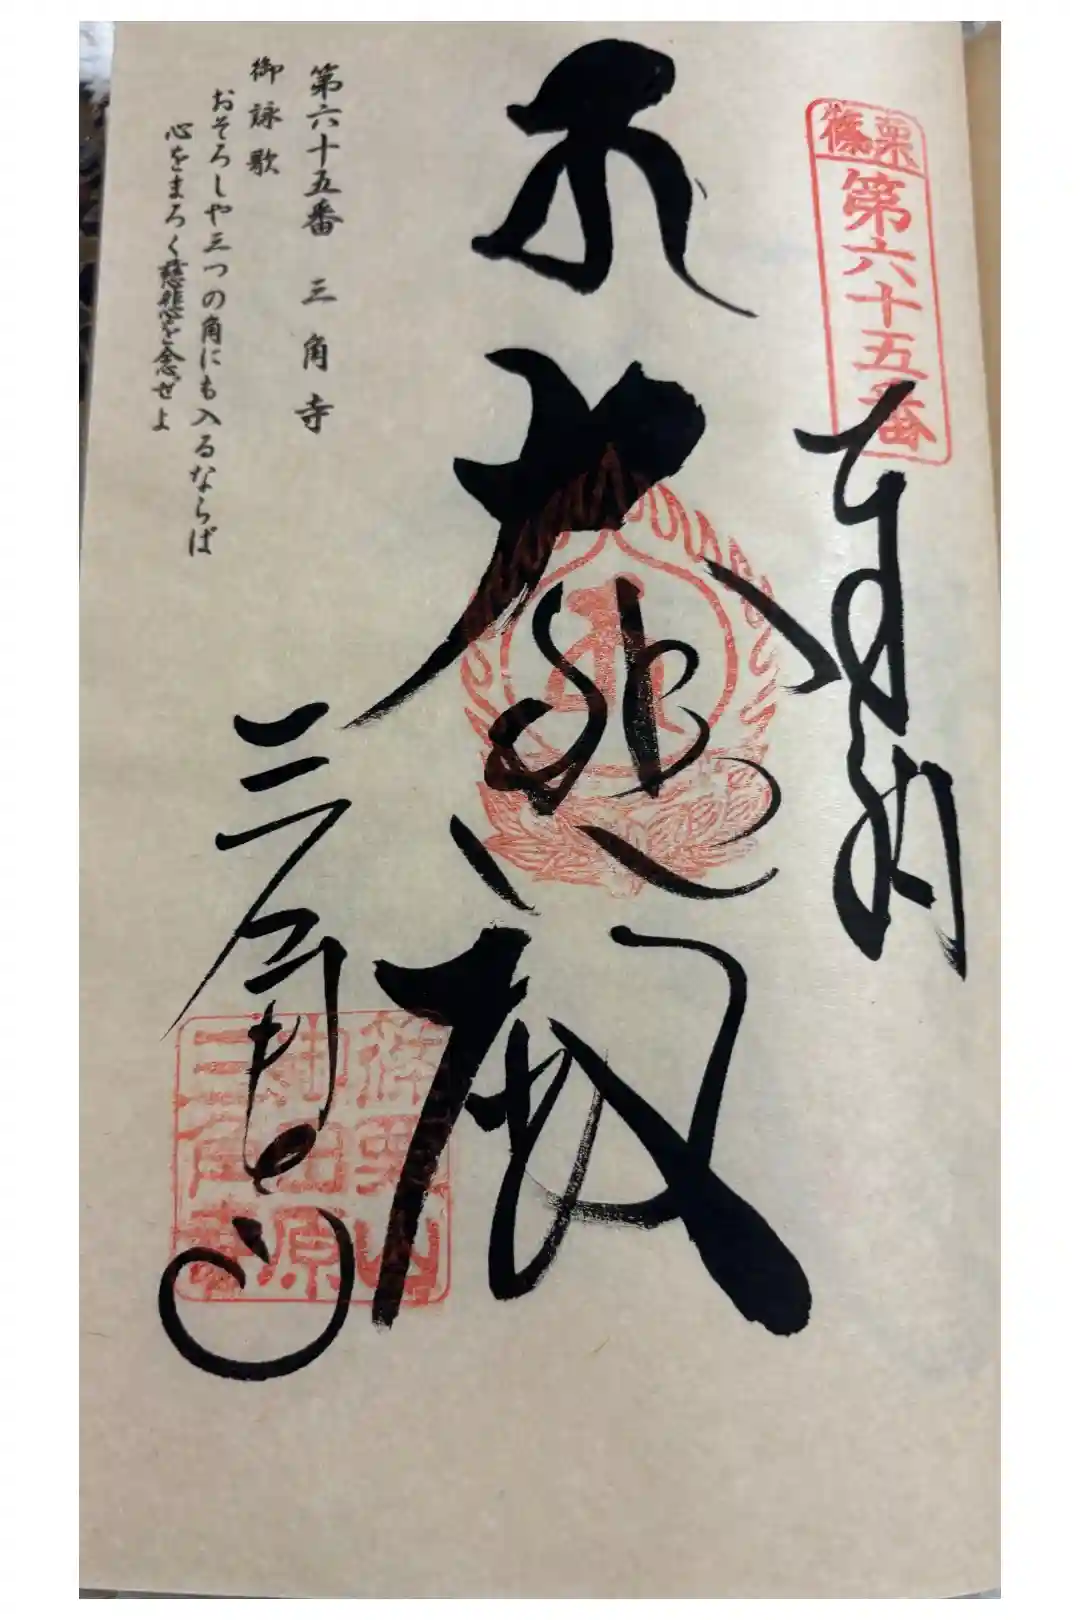 篠栗
第六十五番
奉納
大悲殿
第六十五番 三角寺
御詠歌
おそろしや三つの角にも入るならば
心をまろく慈悲を念ぜよ
三角寺
篠栗山
三角寺